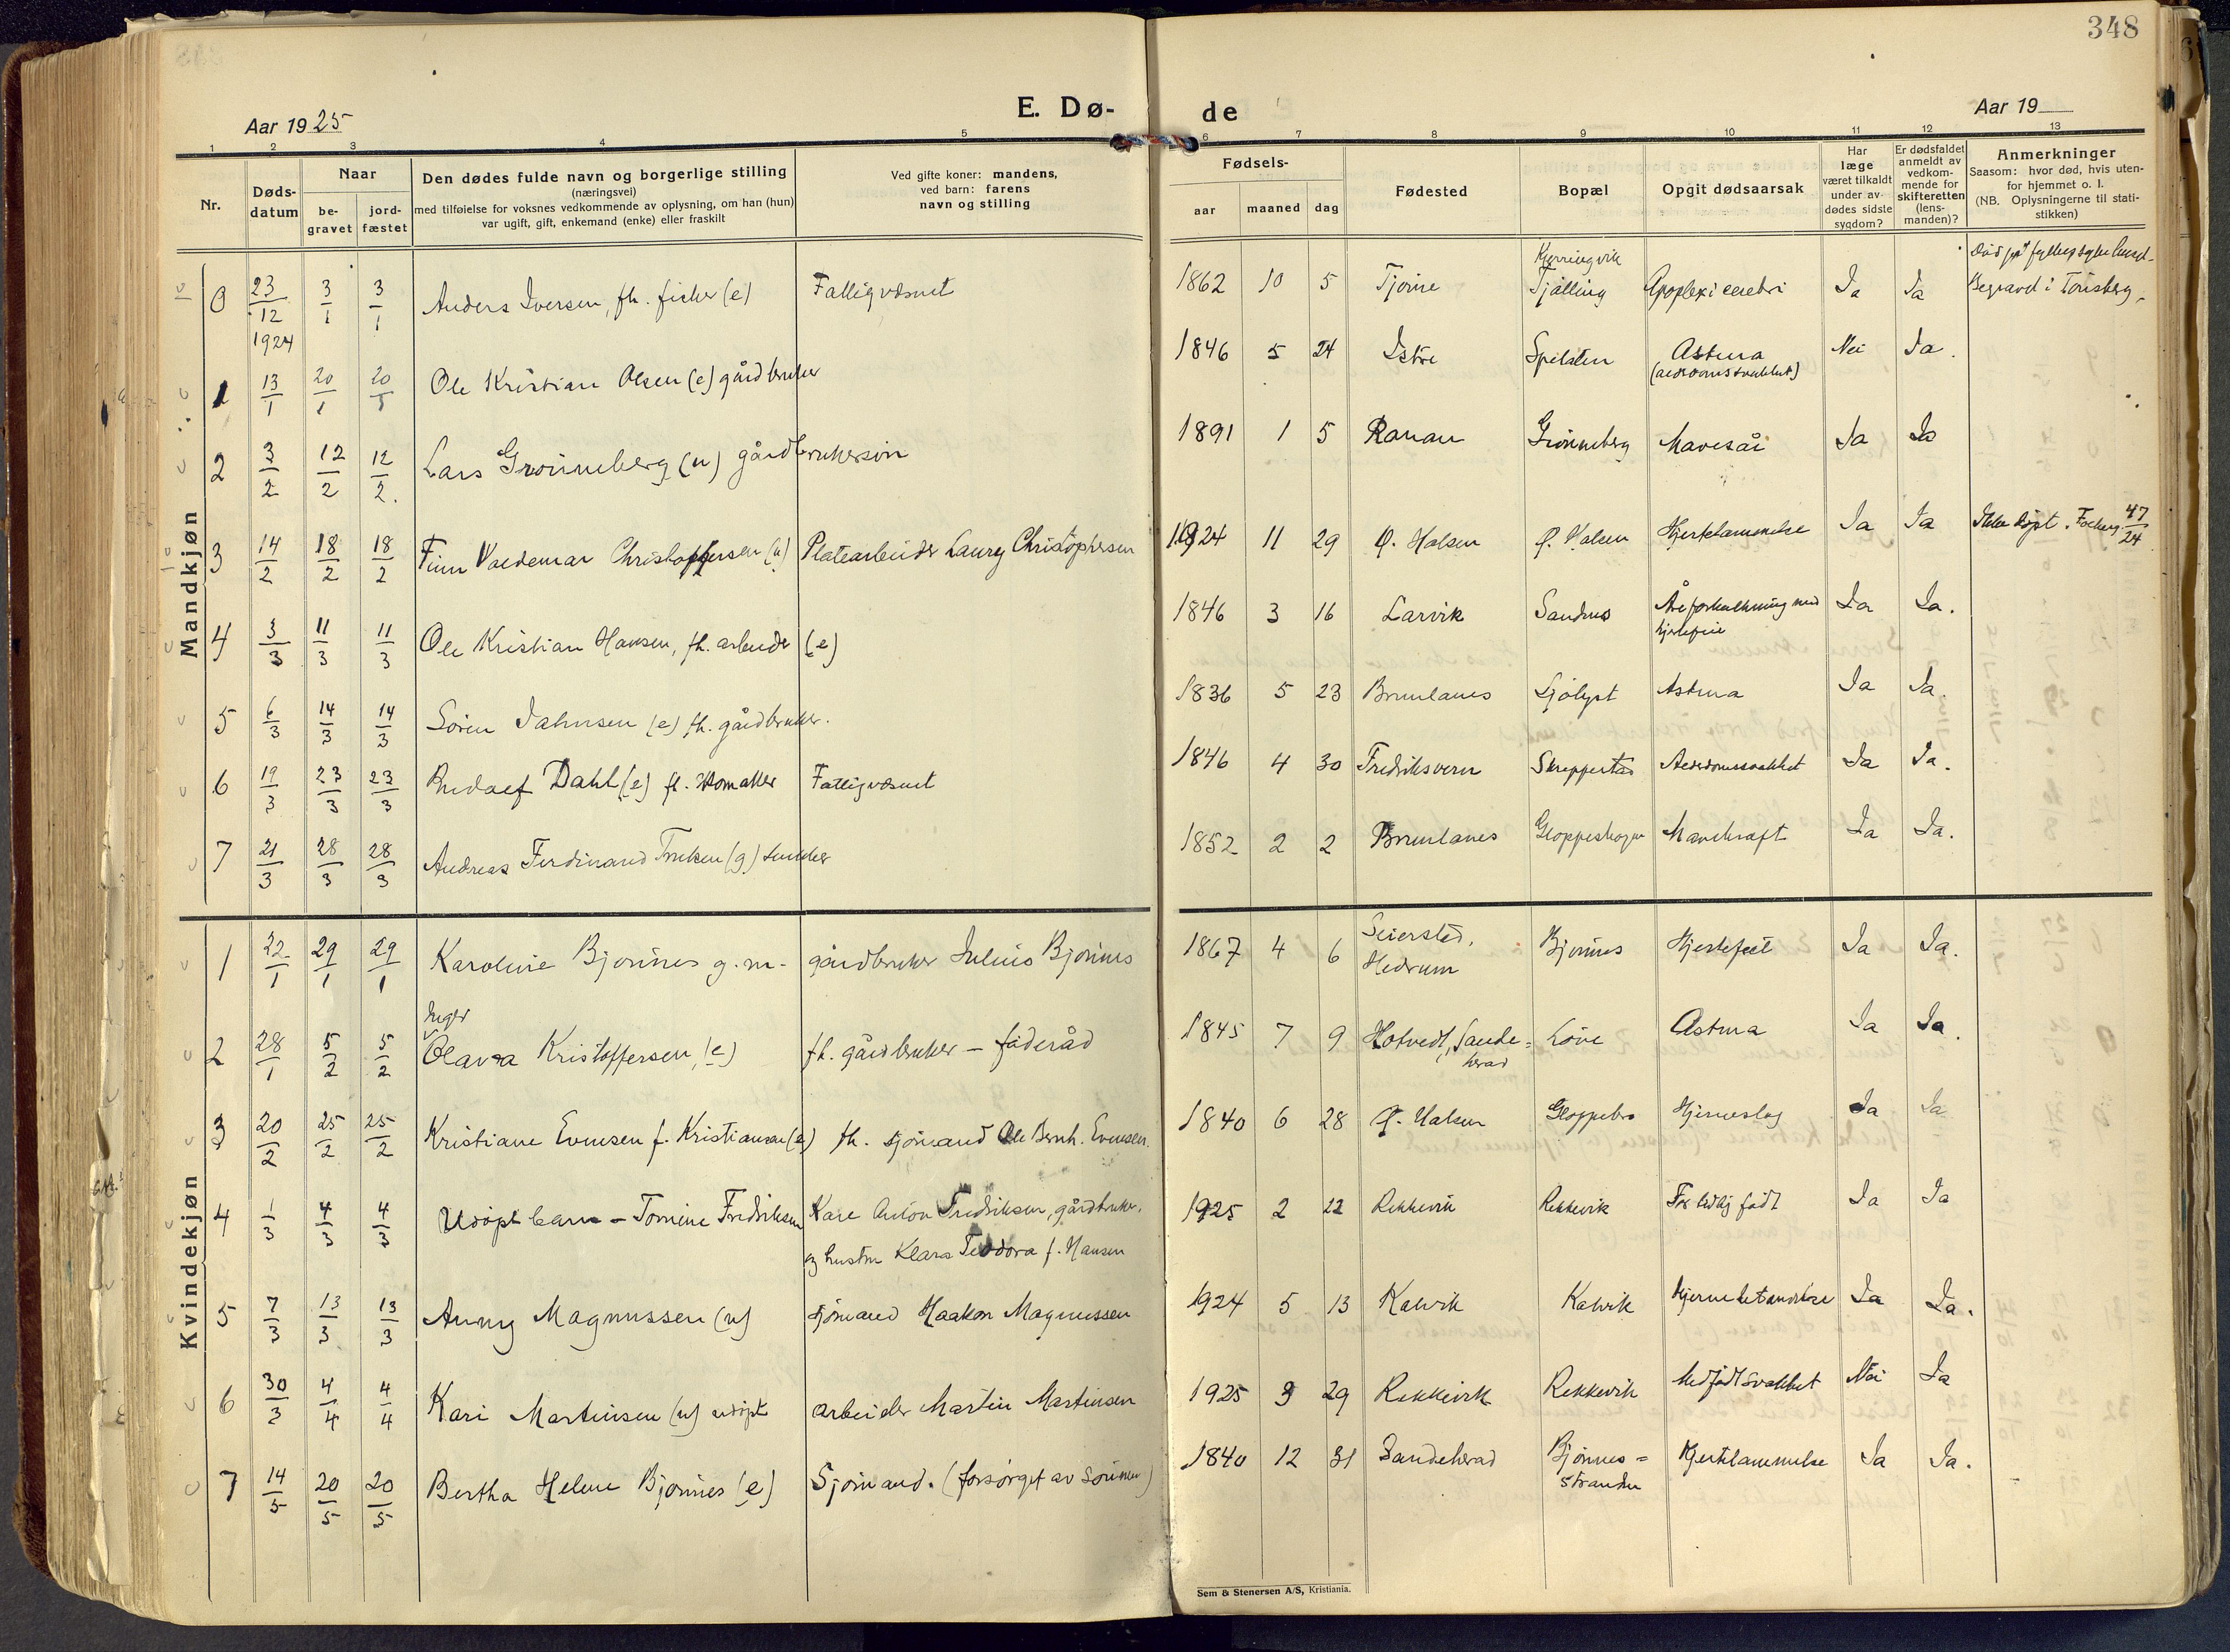 348
Aar 1925
E. Dø-
de
Aar 19
1 2 3 4 5 6 7 8 9 10 11 12 13
Nr.
Døds-
datum
Naar
be-
gravet
jord-
fæstet
Den dødes fulde navn og borgerlige stilling
(næringsvei)
med tilføielse for voksnes vedkommende av oplysning, om han (hun)
var ugift, gift, enkemand (enke) eller fraskilt
Ved gifte koner: mandens,
ved barn: farens
navn og stilling
Fødsels-
aar maaned dag
Fødested
Bopæl
Opgit dødsaarsak
Har
læge
været tilkaldt
under av-
dødes sidste
sygdom?
Er dødsfaldet
anmeldt av
vedkom-
mende for
skifteretten
(lens-
manden)?
Anmerkninger
Saasom: hvor død, hvis uten-
for hjemmet o. l.
(NB. Oplysningerne til stati-
stikken)
Mandkjøn
0 23/12 1924 3/1 3/1 Anders Iversen, fh. fisker (e) Fattigvæsnet 1862 10 5 Tjøme Kjerringvik Tjølling Apoplexi cerebri Ja Ja Begravet i Tønsberg
1 13/1 20/1 20/1 Ole Kristian Olsen (e) gårdbruker 1846 5 24 Istre Nei Ja.
Astma
(alderdomssvakhet)
2 3/2 12/2 12/2. Lars Grønneberg (u) gårdbrukersøn 1891 1 5 Ranau Grønneberg Mavesår Ja Ja
3 14/2 18/2 18/2 Finn Valdemar Christoffersen (u) Platearbeider Laury Christophersen 1924 11 29 Ø. Halsen Ø. Halsen Hjertelammelse Ja Ja Ikke døpt. 47/24
4 3/3 11/3 11/3 Ole Kristian Hansen, fh. arbeider (e) 1846 3 16 Larvik Åreforkalkning med Ja Ja.
hjertefeil
5 6/3 14/3 14/3 Søren Jahnsen (e) fh. gårdbruker. 1836 5 23 Brunlanes Sjølyst Astma Ja Ja.
6 19/3 23/3 23/3 Rudolf Dahl (e) fh. skomaker Fattigvæsnet 1846 4 30 Fredriksvern Alderdomssvakhet Ja Ja.
7 21/3 28/3 28/3 Andreas Ferdinand (g) snekker 1852 2 2 Brunlanes Gloppeskogen Mavekræft Ja Ja.
Kvindekjøn
1 22/1 29/1 29/1 Karoline Bjønnes g.m. gårdbruker Julius Bjønnes 1867 4 6 Seiersted, Hedrum Bjønnes Hjertefeil Ja Ja.
Inger
2 28/1 5/2 5/2 Olava Kristoffersen, (e) fh. gårdbruker – føderåd 1845 7 9 Hotvedt, Sande= Løve Astma Ja Ja.
herad
3 20/2 25/2 25/2 Kristiane Evensen f. Kristiansen (e) fh. sjømand Ole Bernh. Evensen. 1840 6 28 Ø. Halsen Gloppebro Hjerneslag Ja Ja
4 1/3 4/3 4/3 Udøpt barn – Tomine Fredriksen Kare Anton Fredriksen, gårdbruker, 1925 2 22 Rekkevik Rekkevik For tidlig født Ja Ja
og hustru Klara Teodora f. Hansen
5 7/3 13/3 13/3 Anny Magnussen (u) sjømand Haakon Magnussen 1924 5 13 Kalvik Kalvik Hjernebetændelse Ja Ja.
6 30/3 4/4 4/4 Kari Martinsen (u) udøpt arbeider Martin Martinsen 1925 3 29 Rekkevik Rekkevik Medfødt svakhet Nei Ja
7 14/5 20/5 20/5 Bertha Helene Bjønnes (e) Sjømand. (forsørget av sønnen) 1840 12 31 Sandeherad Bjønnes= Hjertelammelse Ja Ja.
stranden
Sem & Stenersen A/S, Kristiania.